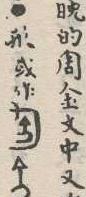 晚的周金文中又
形或作